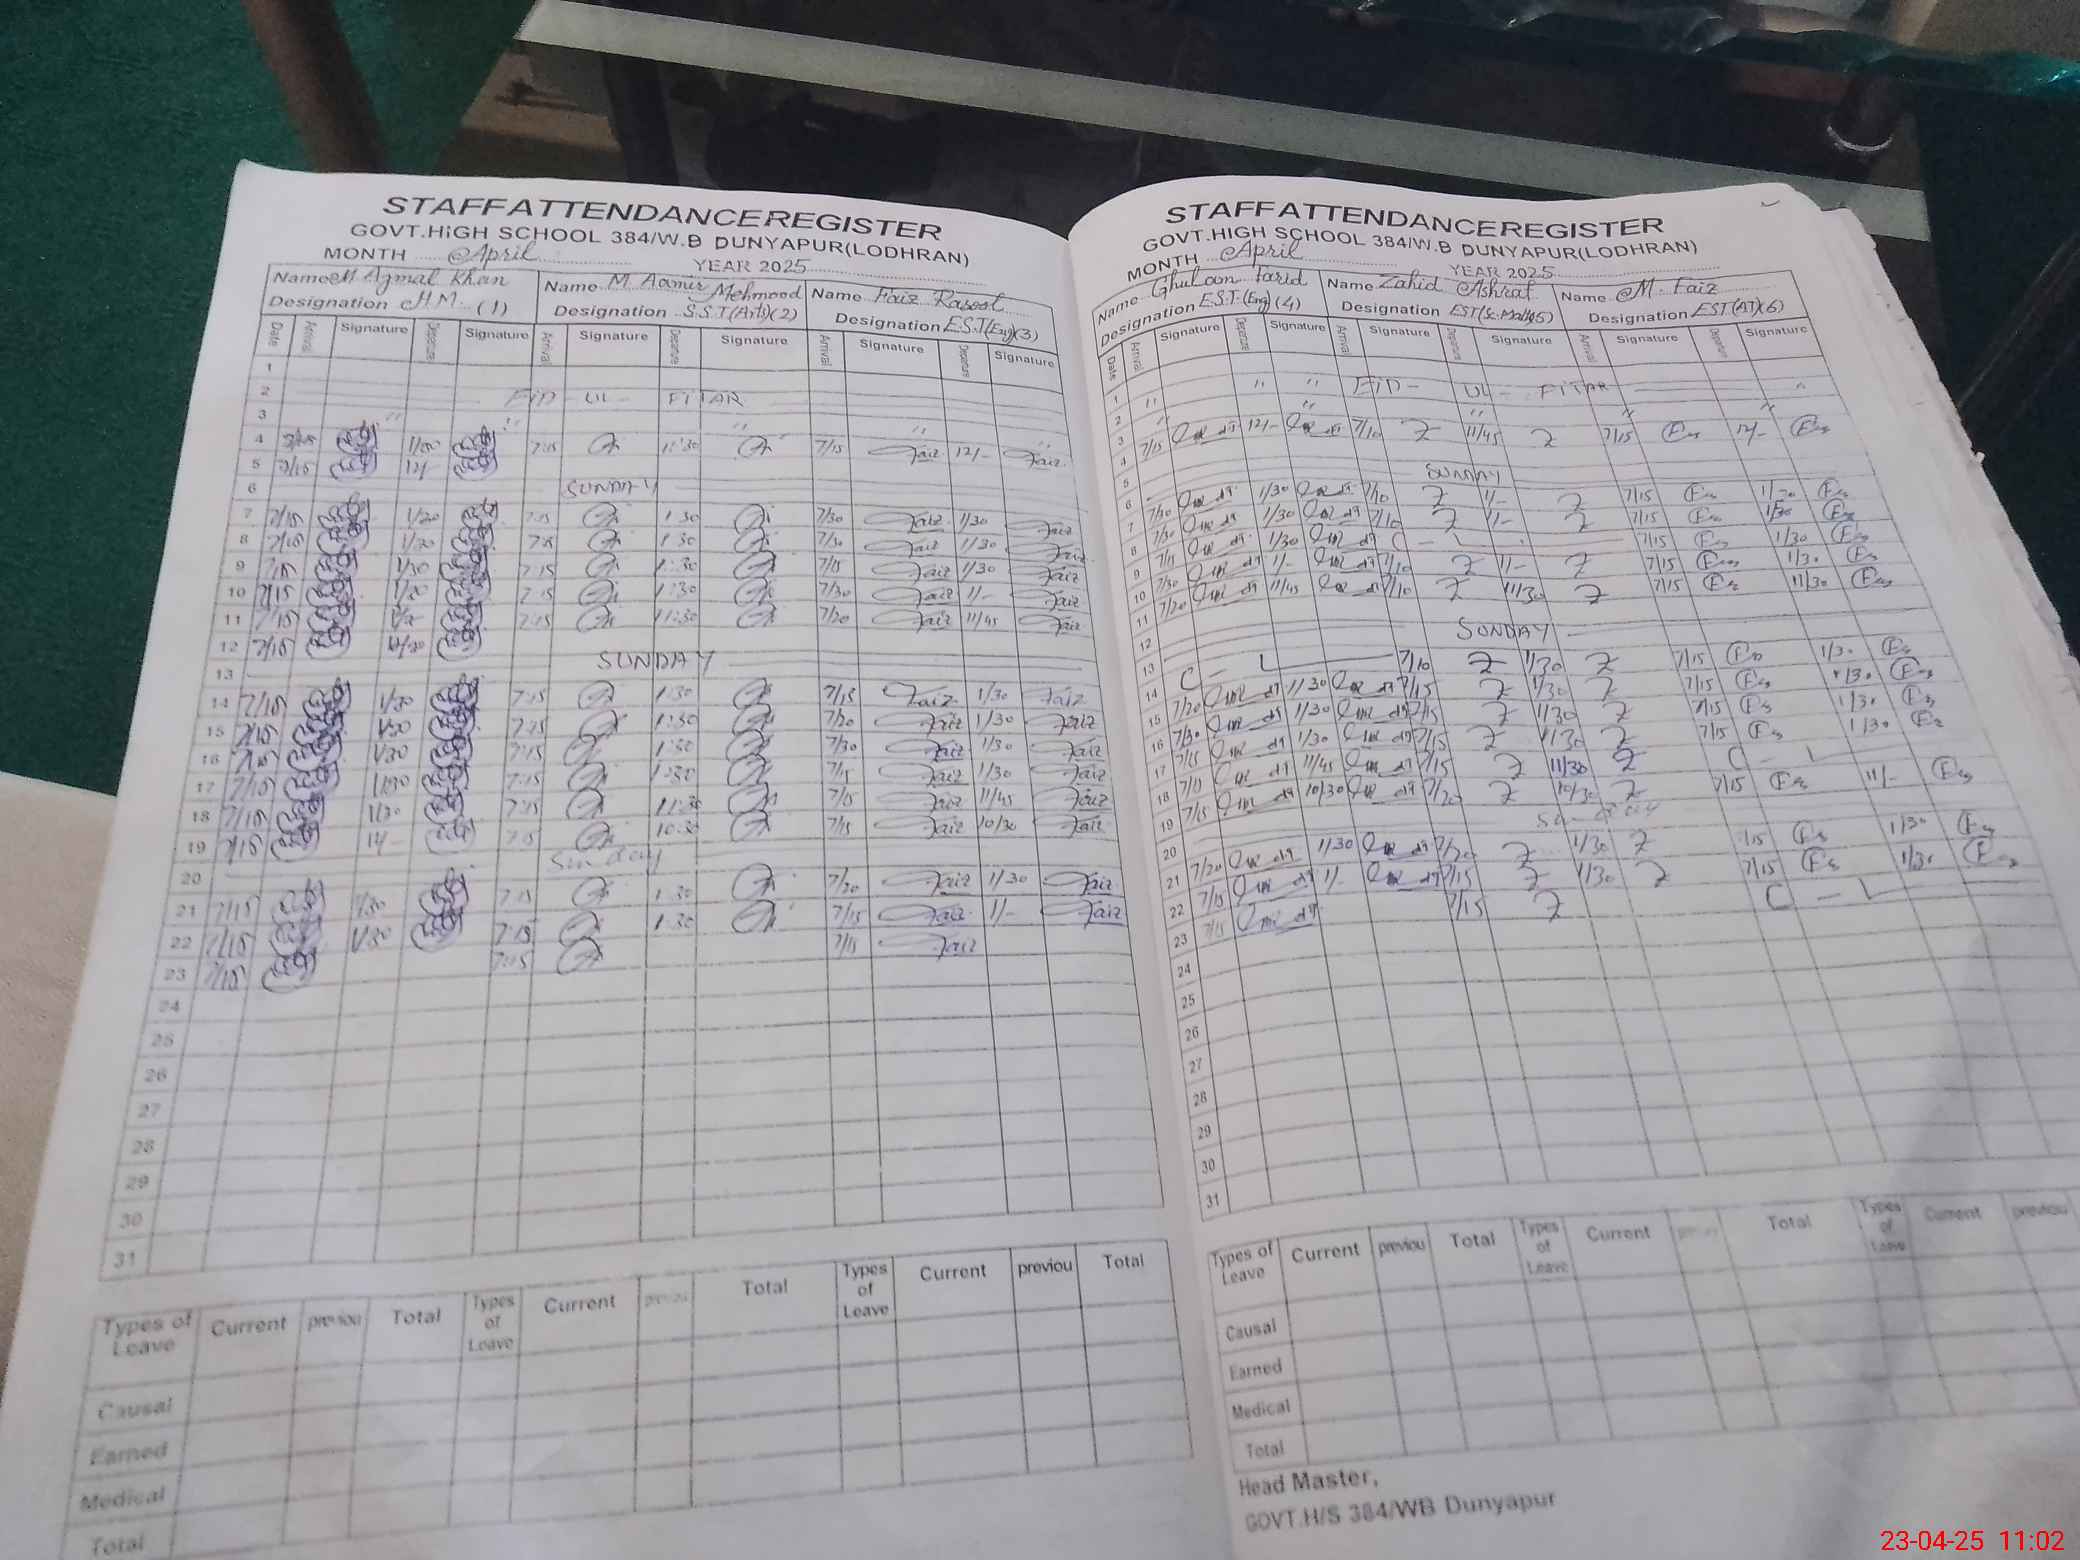 STAFF ATTENDANCE REGISTER
GOVT.HiGH SCHOOL 384/W.B DUNYAPUR(LODHRAN)
MONTH April YEAR 2025
Name M Ajmal Khan Name M Aamir Mehmood Name Faiz Rasool
Designation H.M. (1) Designation S.S.T(Arts)(2) Designation E.S.T(Eng)(3)
Date Arrival Signature Departure Signature Arrival Signature Departure Signature Arrival Signature Departure Signature
1
2 EID - UL - FITAR
3 " " " " "
4 7:15 11:30 7/15 Faiz 12/- Faiz
5 7/15 12/-
6 SUNDAY
7 7/15 1/30 7:15 1:30 7/30 Faiz 1/30 Faiz
8 7/15 1/30 7:15 1:30 7/30 Faiz 1/30 Faiz
9 7/15 1/30 7:15 1:30 7/15 Faiz 1/30 Faiz
10 7/15 1/30 7:15 1:30 7/30 Faiz 1/- Faiz
11 7/15 7:15 11:30 7/20 Faiz 11/45 Faiz
12 7/15
13 SUNDAY
14 7/15 1/30 7:15 1:30 7/15 Faiz 1/30 Faiz
15 7/15 1/30 7:15 1:30 7/20 Faiz 1/30 Faiz
16 7/15 1/30 7:15 1:30 7/30 Faiz 1/30 Faiz
17 7/15 1/30 7:15 1:30 7/15 Faiz 1/30 Faiz
18 7/15 1/30 7:15 11:30 7/15 Faiz 11/45 Faiz
19 7/15 7:15 10:30 7/15 Faiz 10/30 Faiz
20 Sunday
21 7/15 1/30 7:15 1:30 7/20 Faiz 1/30 Faiz
22 7/15 1/30 7:15 1:30 7/15 Faiz 1/- Faiz
23 7/15 7:15 7/15 Faiz
24
25
26
27
28
29
30
31
Types of Leave Current previou Total Types of Leave Current previou Total Types of Leave Current previou Total
Causal
Earned
Medical
Total
STAFF ATTENDANCE REGISTER
GOVT.HIGH SCHOOL 384/W.B DUNYAPUR(LODHRAN)
MONTH April YEAR 2025
Name Ghulam Farid Name Zahid Ashraf Name M. Faiz
Designation E.S.T.(Eng)(4) Designation EST(Sc.Math)(5) Designation EST(AT)(6)
Date Arrival Signature Departure Signature Arrival Signature Departure Signature Arrival Signature Departure Signature
1 " " " EID - UL - FITAR "
2 " " " "
3 7/15 12/- 7/10 Z 11/45 Z 7/15 12/-
4
5 SUNDAY
6 7/30 1/30 7/10 Z 1/- Z 7/15 1/30
7 7/30 1/30 7/10 Z 1/- Z 7/15 1/30
8 7/15 1/30 C - L 7/15 1/30
9 7/30 1/- 7/10 Z 1/- Z 7/15 1/30
10 7/20 11/45 7/10 Z 11/30 Z 7/15 11/30
11
12 SUNDAY
13 C - L 7/10 Z 1/30 Z 7/15 1/30
14 7/20 1/30 7/15 Z 1/30 Z 7/15 1/30
15 7/30 1/30 7/15 Z 1/30 Z 7/15 1/30
16 7/15 1/30 7/15 Z 1/30 Z 7/15 1/30
17 7/15 11/45 7/15 Z 11/30 Z C - L
18 7/15 10/30 7/20 Z 10/30 Z 7/15 11/-
19 Sunday
20 7/20 1/30 7/20 Z 1/30 Z 7/15 1/30
21 7/15 1/- 7/15 Z 1/30 Z 7/15 1/30
22 7/15 7/15 Z C - L
23
24
25
26
27
28
29
30
31
Types of Leave Current previou Total Types of Leave Current Total Types of Leave Current previou
Causal
Earned
Medical
Total
Head Master,
GOVT.H/S 384/WB Dunyapur
23-04-25 11:02